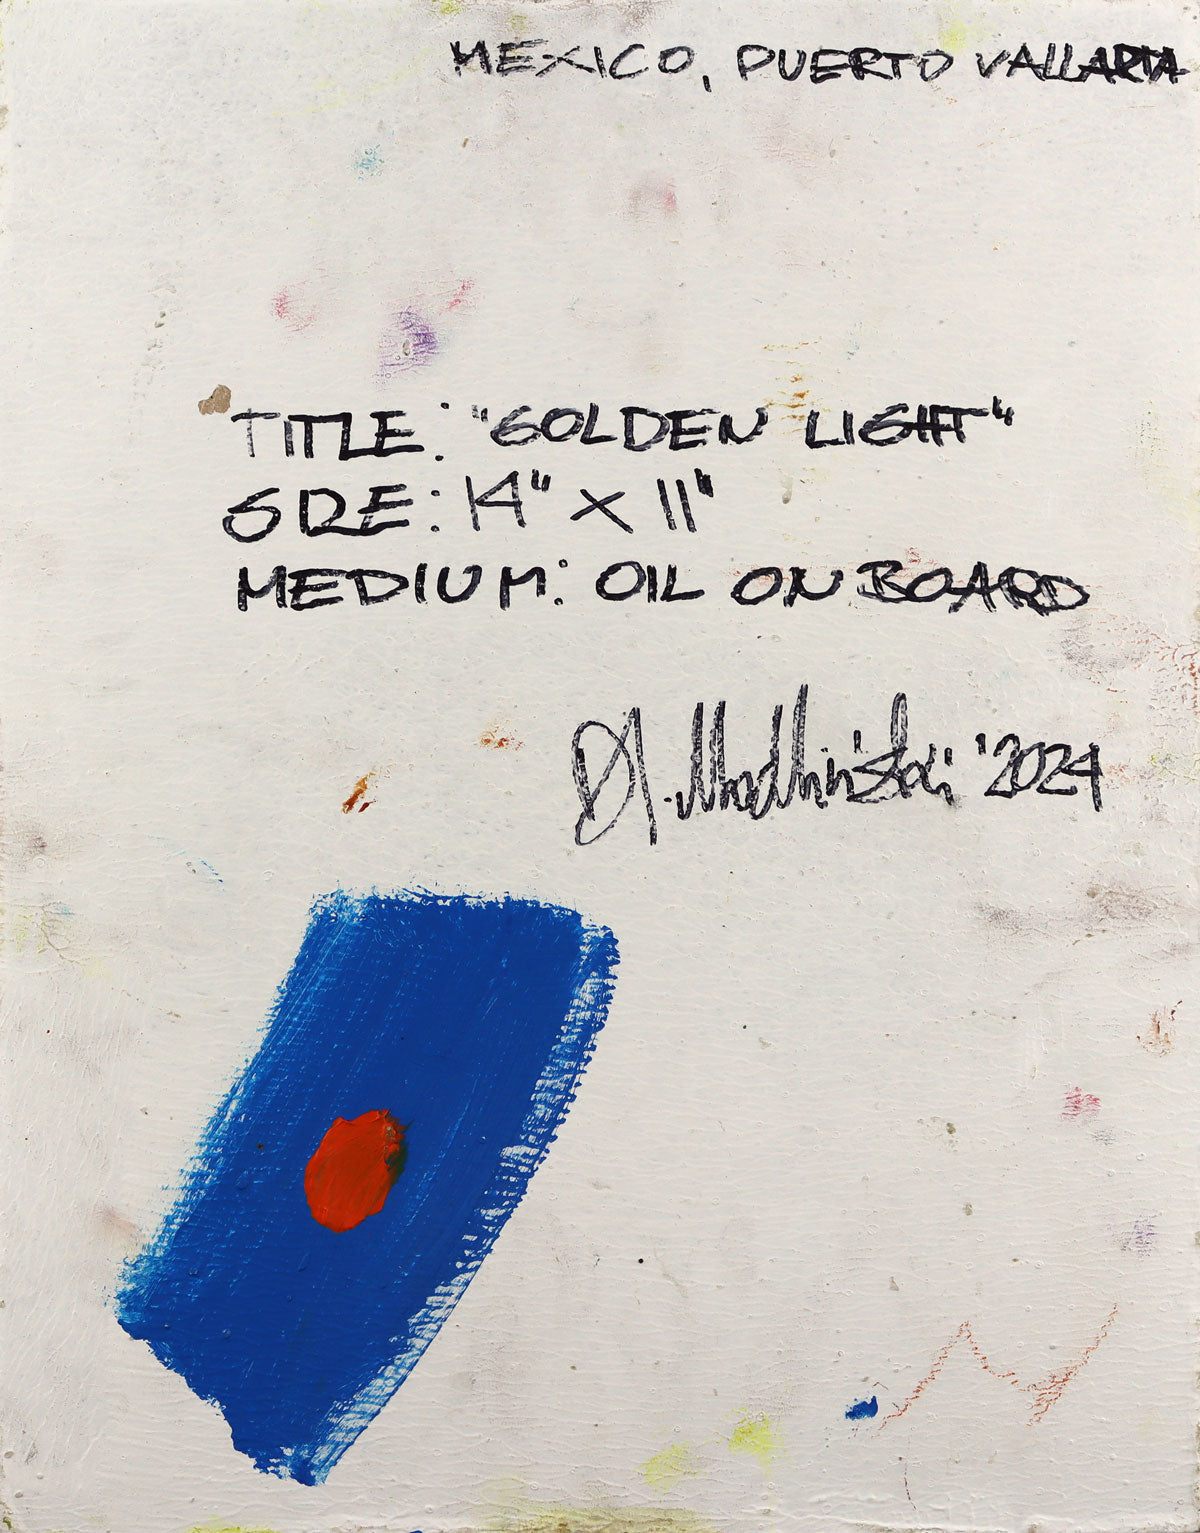 MEXICO, PUERTO VALLARTA
TITLE: "GOLDEN LIGHT"
SIZE: 14" X 11"
MEDIUM: OIL ON BOARD
'2024